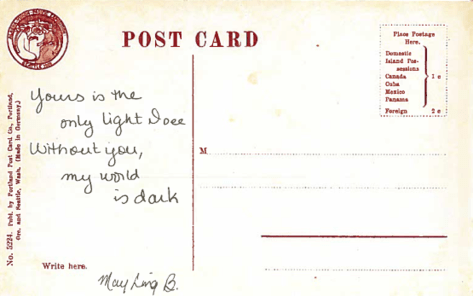 POST CARD
Place Postage
Here.
Domestic
Island Pos-
sessions
Canada
Cuba
Mexico
Panama
1 c
Foreign 2 c
Yours is the
only light I see
Without you,
my world
is dark
M
No. 5224. Publ. by Portland Post Card Co., Portland,
Ore. and Seattle, Wash. (Made in Germany.)
Write here.
May Ling B.